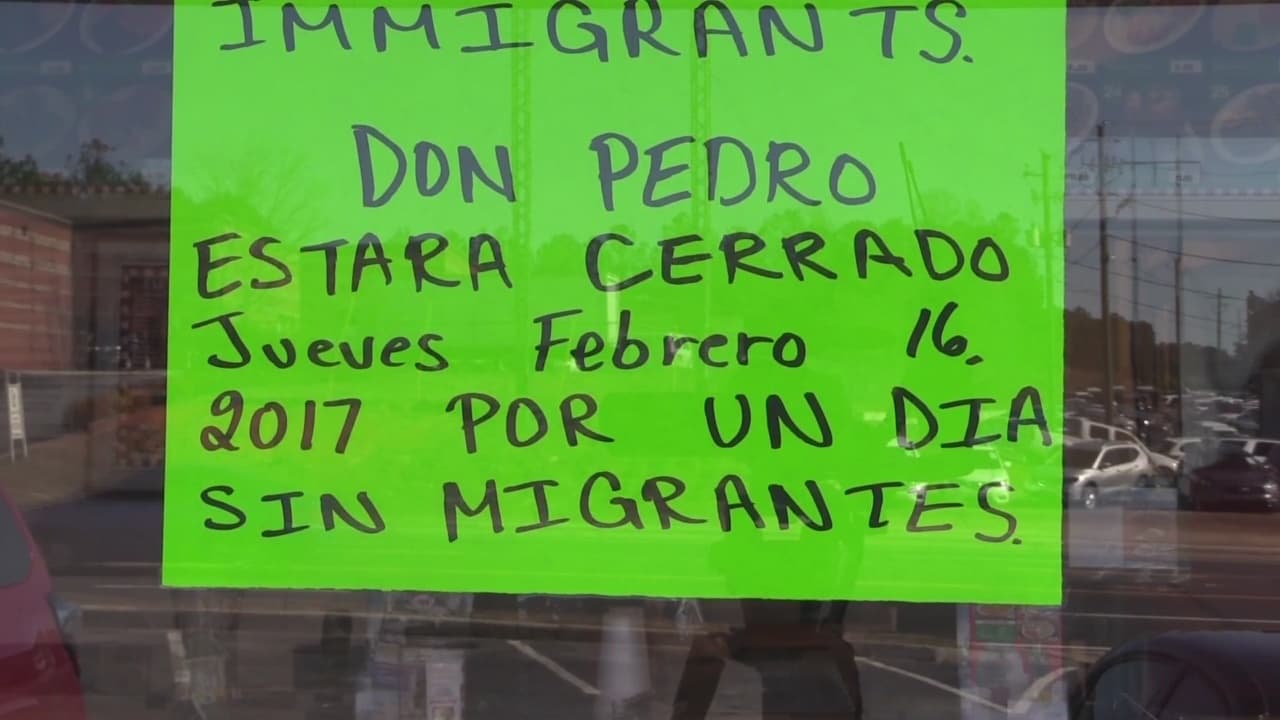 IMMIGRANTS.
DON PEDRO
ESTARA CERRADO
Jueves Febrero 16.
2017 POR UN DIA
SIN MIGRANTES.